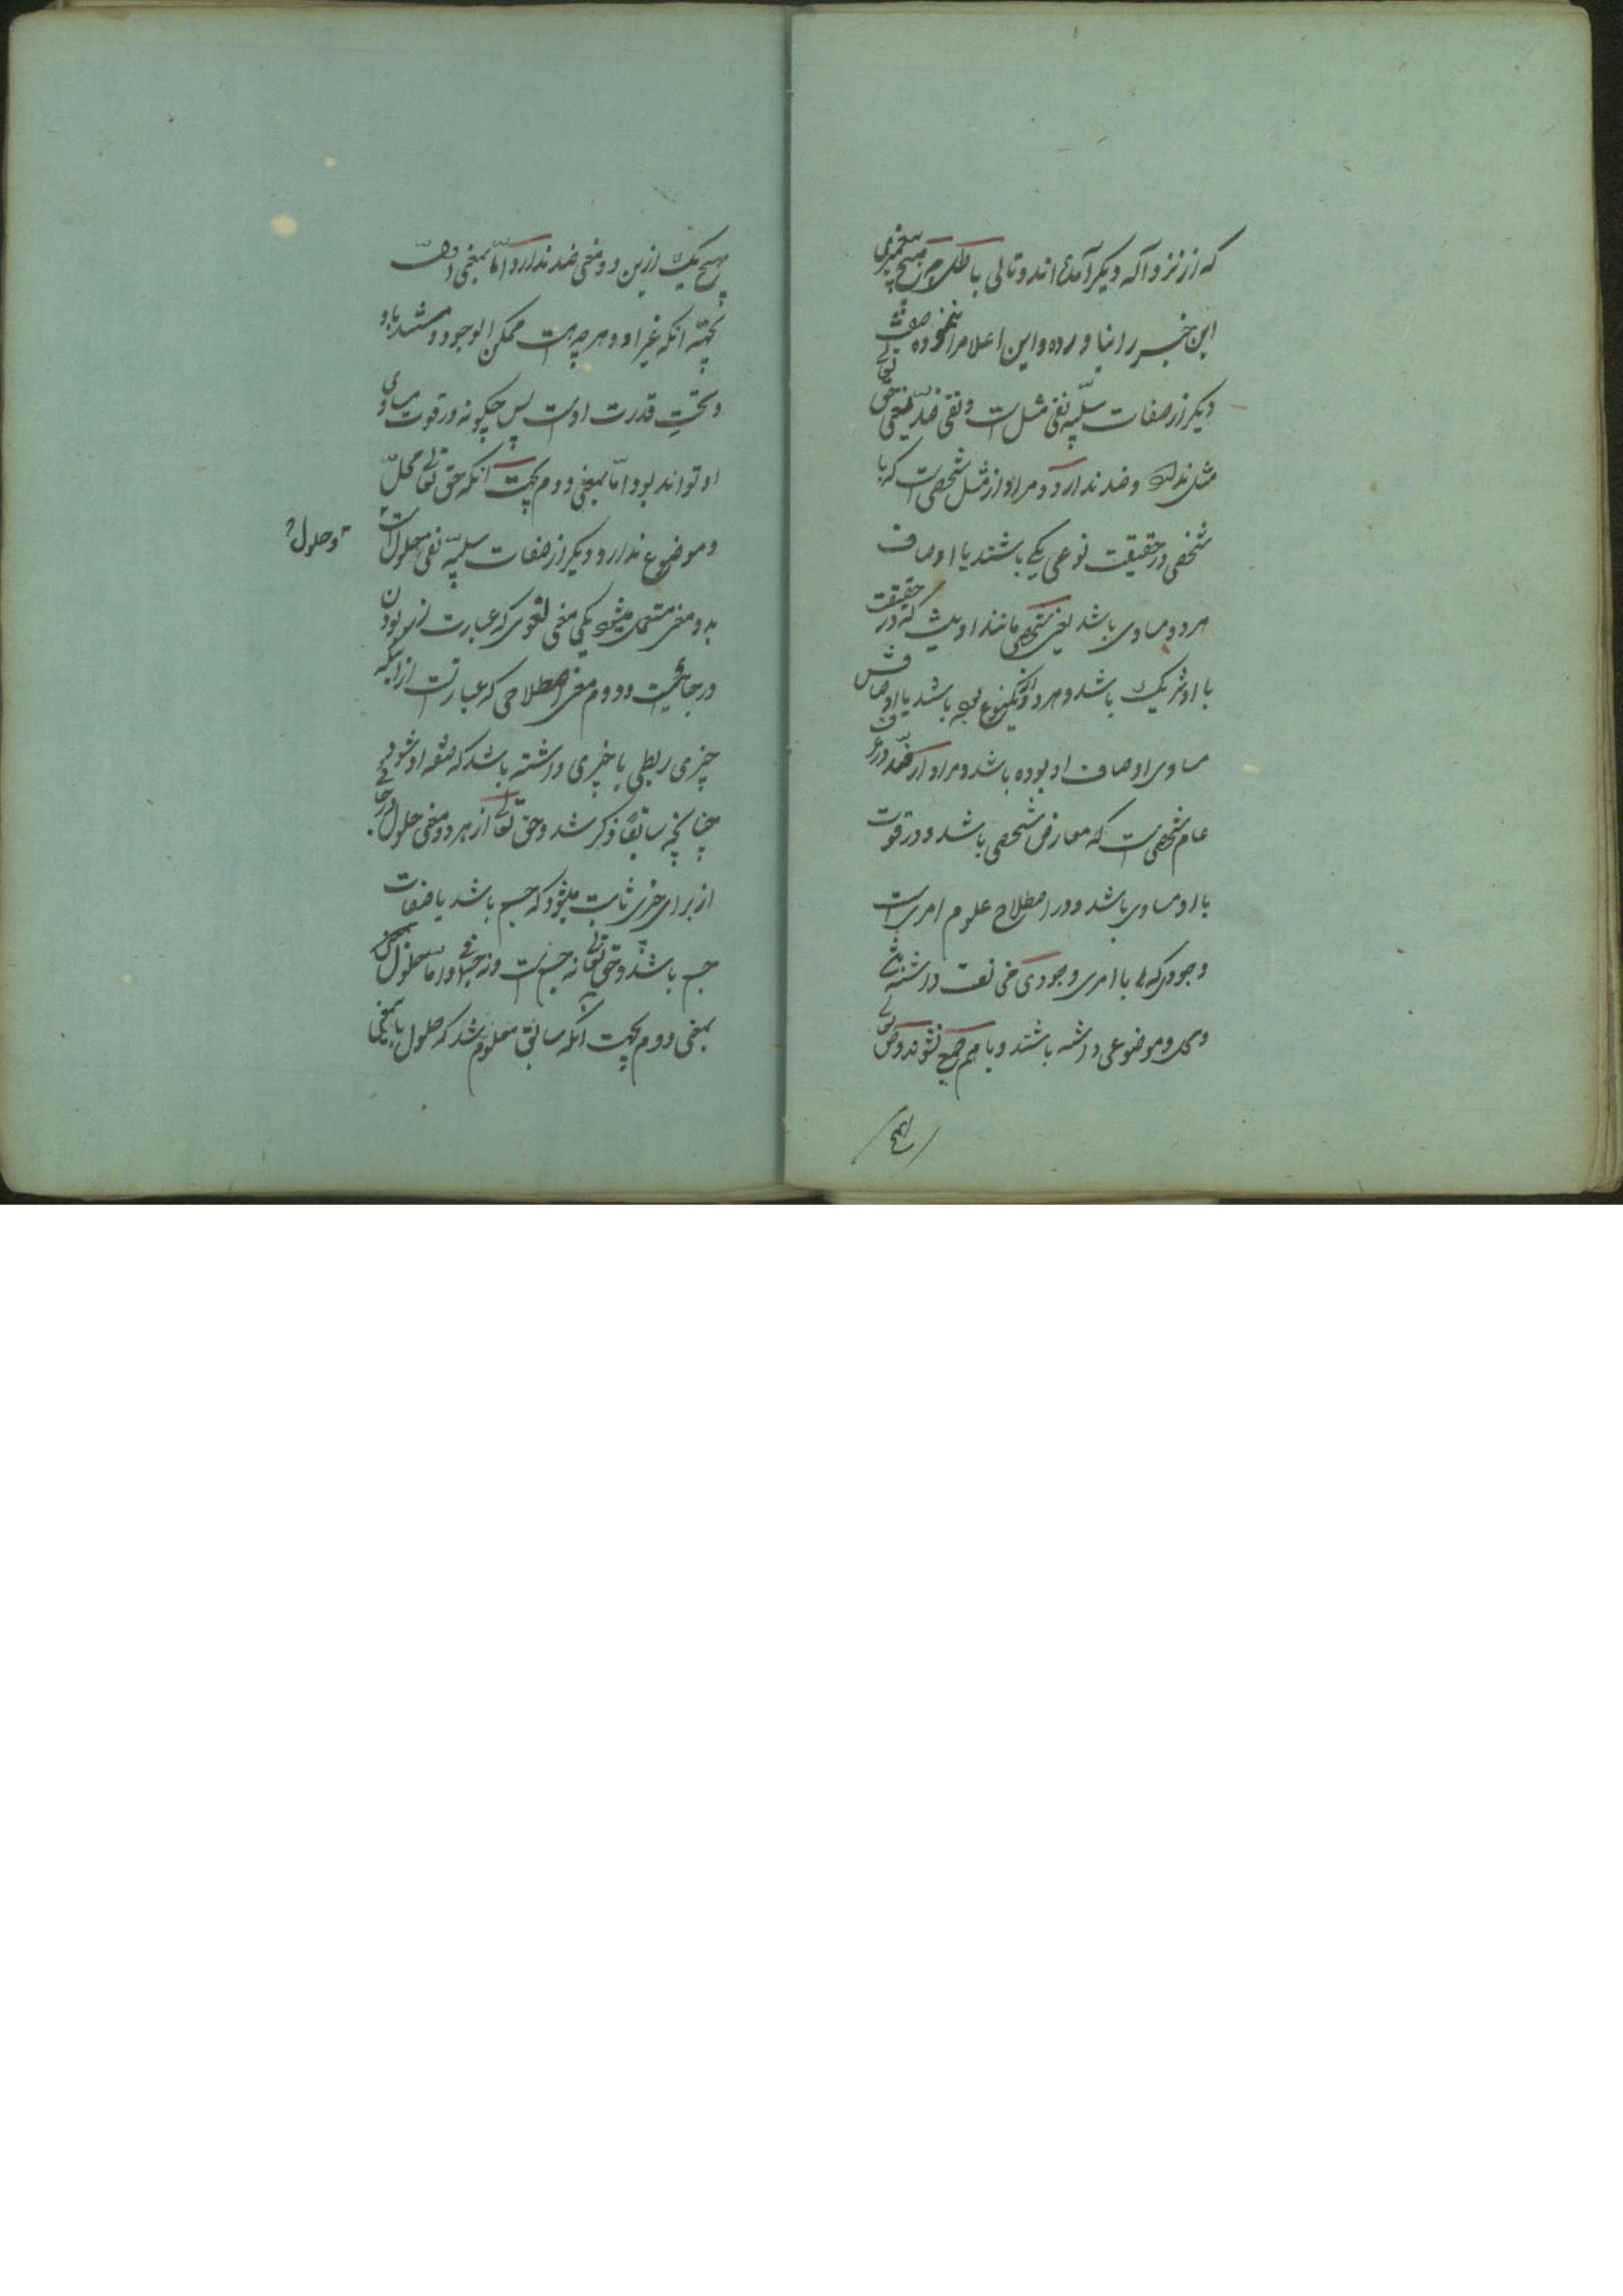 که از نزد آله دیگر آمده‌اند و تالی باطل چه هیچ پیغمبری
این خبر را نیاورده و این اعلام را ننموده و صفت
دیگر از صفات سلبیّه نفی مثل است و نفی ضدّ یعنی حق تعالی
مثل ندارد و ضد ندارد و مراد از مثل شخصی است که با
شخصی در حقیقت نوعی یکی باشند یا اوصاف
هر دو مساوی باشد یعنی شخصی مانند او نیست که در حقیقت
با او شریک باشد و هر دو از یکنوع بوده باشند یا اوصافش
مساوی اوصاف او بوده باشد و مراد از ضدّ در عرف
عام شخصی است که معارض شخصی باشد و در قوت
با او مساوی باشد و در اصطلاح علوم امری است
وجودی که با امری وجودی مخالفت داشته باشد
و محل و موضوعی داشته باشند و با هم جمع نشوند و حق تعالی
هیچ
هیچ یک ازین دو معنی ضد ندارد امّا بمعنی اوّل
بجهة انکه غیر او و هر چه هست ممکن الوجود و مستند باو
و تحتِ قدرت اوست پس چگونه در قوت مساوی
او تواند بود و امّا بمعنی دوم بجهت انکه حق تعالی محلّ
و موضوع ندارد و دیگر از صفات سلبیّه نفی حلول است
و حلول
بدو معنی مستعمل میشود یکی معنی لغوی که عبارت از بودن
در جائیست و دوم معنی اصطلاحی که عبارتست از اینکه
چیزی ربطی با چیزی داشته باشد که صفة او شود
چنانچه سابقًا ذکر شد و حق تعالی از هر دو معنی حلول
از برای چیزی ثابت میشود که جسم باشد یا صفات
جسم باشد و حق تعالی نه جسم است و نه جسمانی و امّا حلول
بمعنی دوم بجهت انکه سابق معلوم شد که حلول باین معنی